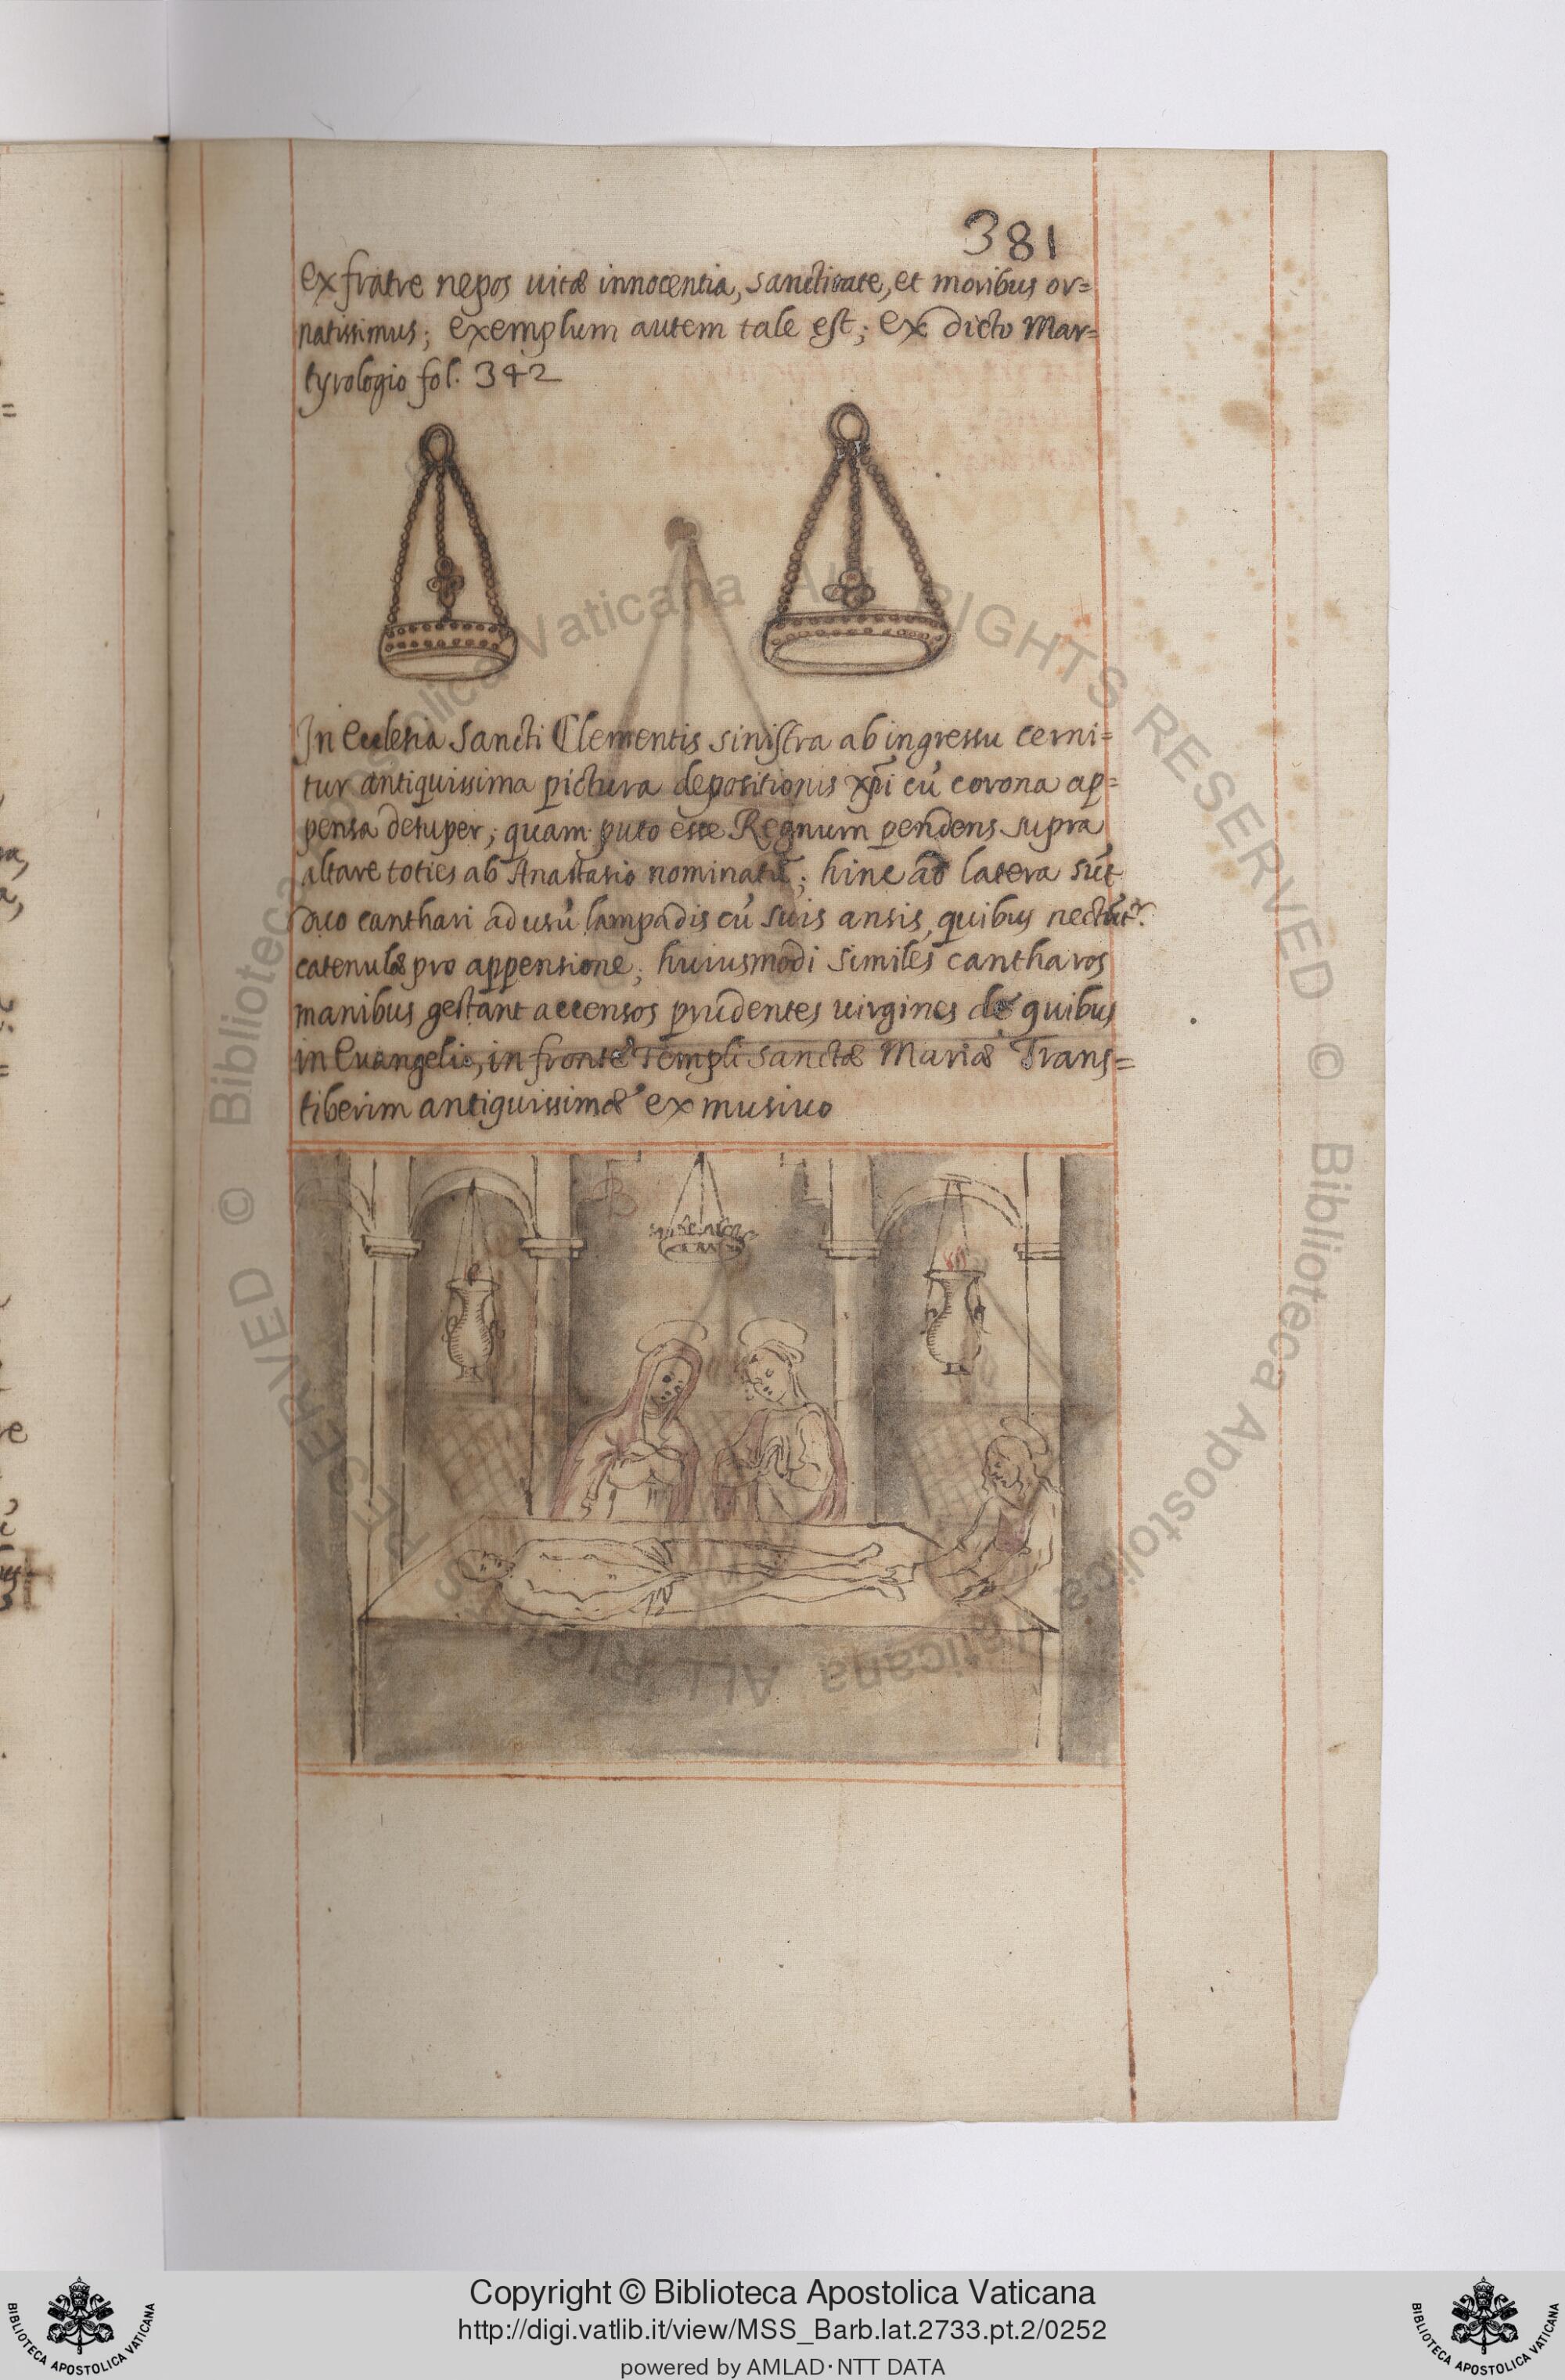 381
ex fratre nepos uitæ innocentia, sanctitate, et moribus or=
natissimus; exemplum autem tale est; ex dicto Mar=
tyrologio fol. 342
In Ecclesia Sancti Clementis sinistra ab ingressu cerni=
tur antiquissima pictura depositionis xp̄i cū corona ap=
pensa desuper; quam puto esse Regnum pendens supra
altare toties ab Anastasio nominatū; hinc ad latera sūt
duo canthari ad usū lampadis cū suis ansis, quibus
catenulæ pro appensione; huiusmodi similes cantharos
manibus gestant accensos prudentes uirgines de quibus
in Euangelio, in fronte Templi Sanctæ Mariæ Trans=
tiberim antiquissimæ ex musiuo
© Biblioteca Apostolica Vaticana ALL RIGHTS RESERVED © Biblioteca Apostolica Vaticana ALL RIGHTS RESERVED
Copyright © Biblioteca Apostolica Vaticana
http://digi.vatlib.it/view/MSS_Barb.lat.2733.pt.2/0252
powered by AMLAD·NTT DATA
BIBLIOTECA APOSTOLICA VATICANA
BIBLIOTECA APOSTOLICA VATICANA